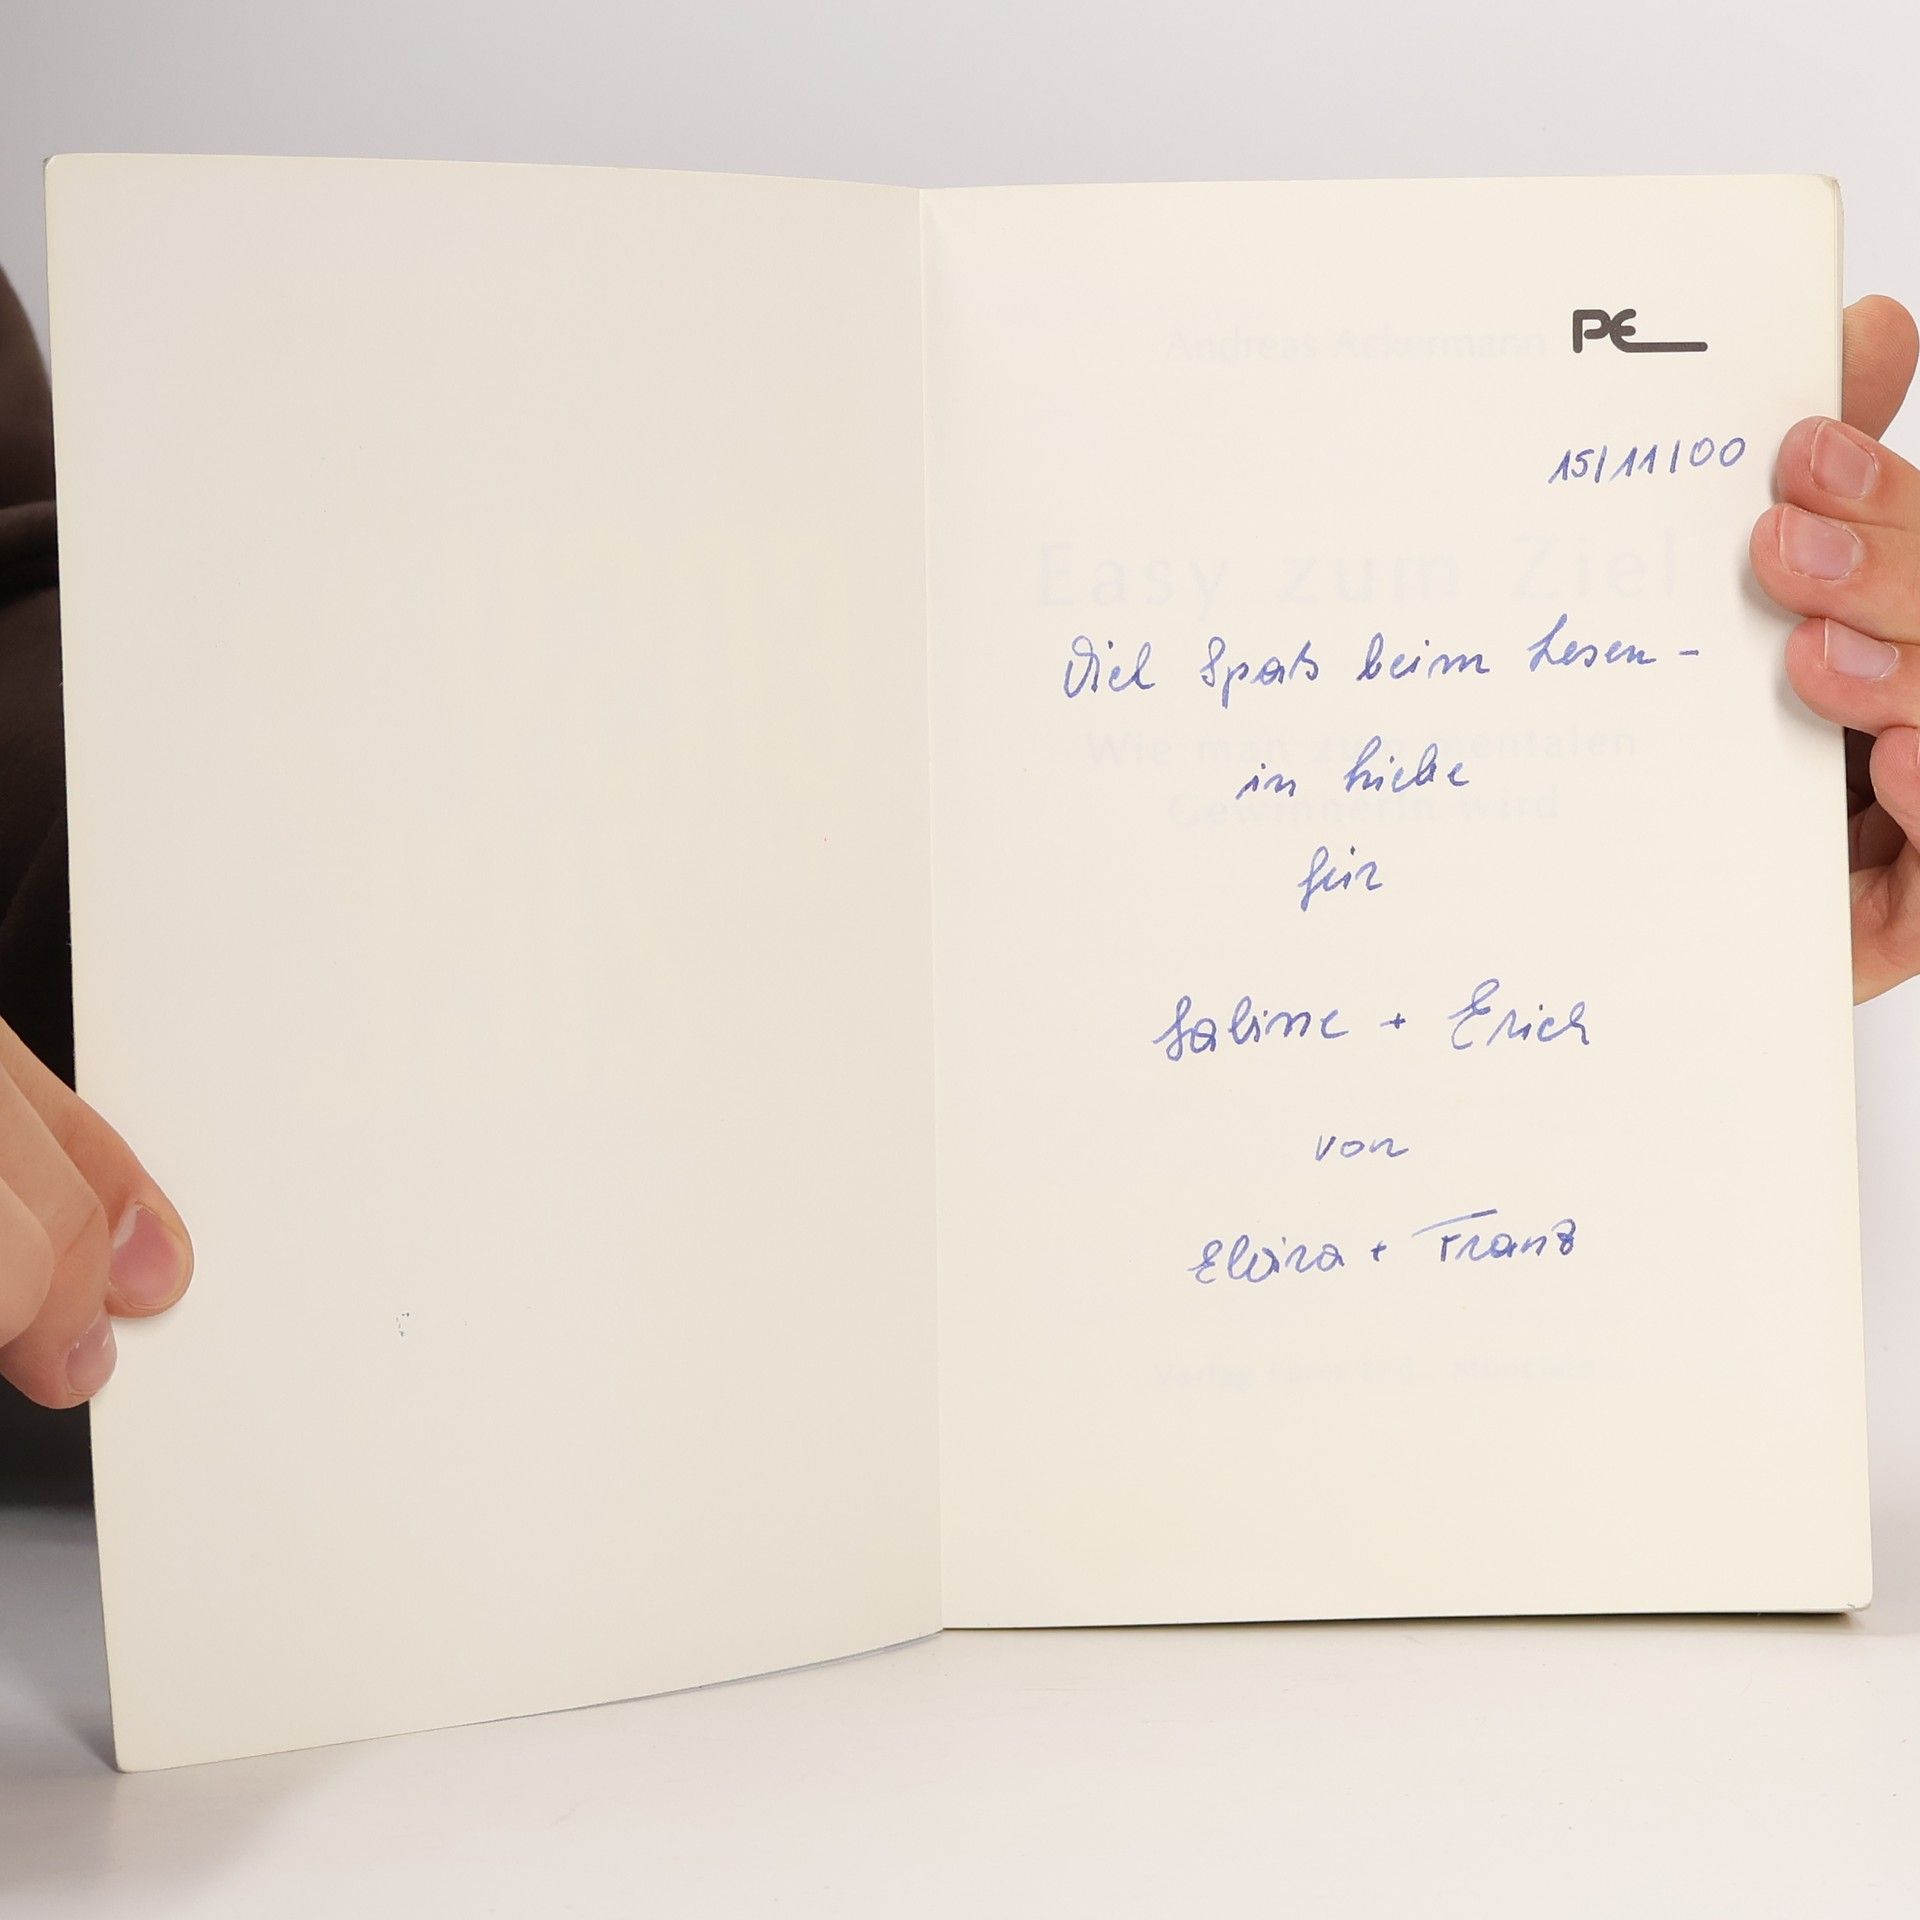 Andreas Ackermann
PE
15/11/00
Easy zum Ziel
Viel Spaß beim Lesen -
Wie man zum mentalen
in Liebe
Gewinnerin wird
für
Sabine + Erich
von
Elvira + Franz
Verlag Peter Erd, München